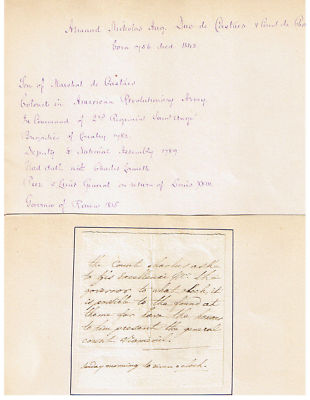 Armand Nicholas Aug. Duc de Castries & Count de
born 1756 died 1842
Son of Marshal de Castries
Colonel in American Revolutionary Army
In Command of 2nd Regiment
Brigadier of Cavalry 1782
Deputy to National Assembly 1789
Had duel with Charles Lameth
Peer & Lieut General on return of Louis XVIII
Governor of Rouen 1815
the Count Charles asks
to his excellence the
governor to what clock it
is posible to the found at
home for have the honor
to him present the general
count
today morning to o'clock.